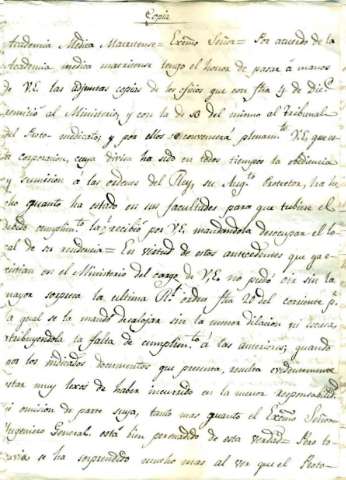 Copia
Academia Medica Matritense = Exmo Señor = Por acuerdo de la
Academia medica matritense tengo el honor de pasar á manos
de V.E. las adjuntas copias de los oficios que con fha 4 de Dice
remitió al Ministerio, y con la de 13 del mismo al Tribunal
del Proto-medicato, y por ellos se convencerá plenamte V.E. que
corporacion, cuya divisa ha sido en todos tiempos la obediencia
y sumision á las ordenes del Rey, su Augto Protector, ha he
cho quanto ha estado en sus facultades para que tubiese el
cumplimto la recibió por V.E. mandandola desocupar el lo
cal de su residencia = En virtud de estos antecedentes que ya e
sistian en el Ministerio del cargo de V.E. no pudo oir sin la
mayor sorpresa la ultima Rl orden fha 20 del corriente p.
la qual se la manda desalojar sin la menor dilacion ni escusa
atribuyendola la falta de cumplimto á las anteriores; quando
por los indicados documentos que presenta, resulta evidentemente
estar muy lexos de haber incurrido en la menor responsabilid
ni omision de parte suya, tanto mas quanto el Exmo Señor
Ingeniero General está bien persuadido de esta verdad = Pero to
davia se ha sorprendido mucho mas al ver que el Proto-